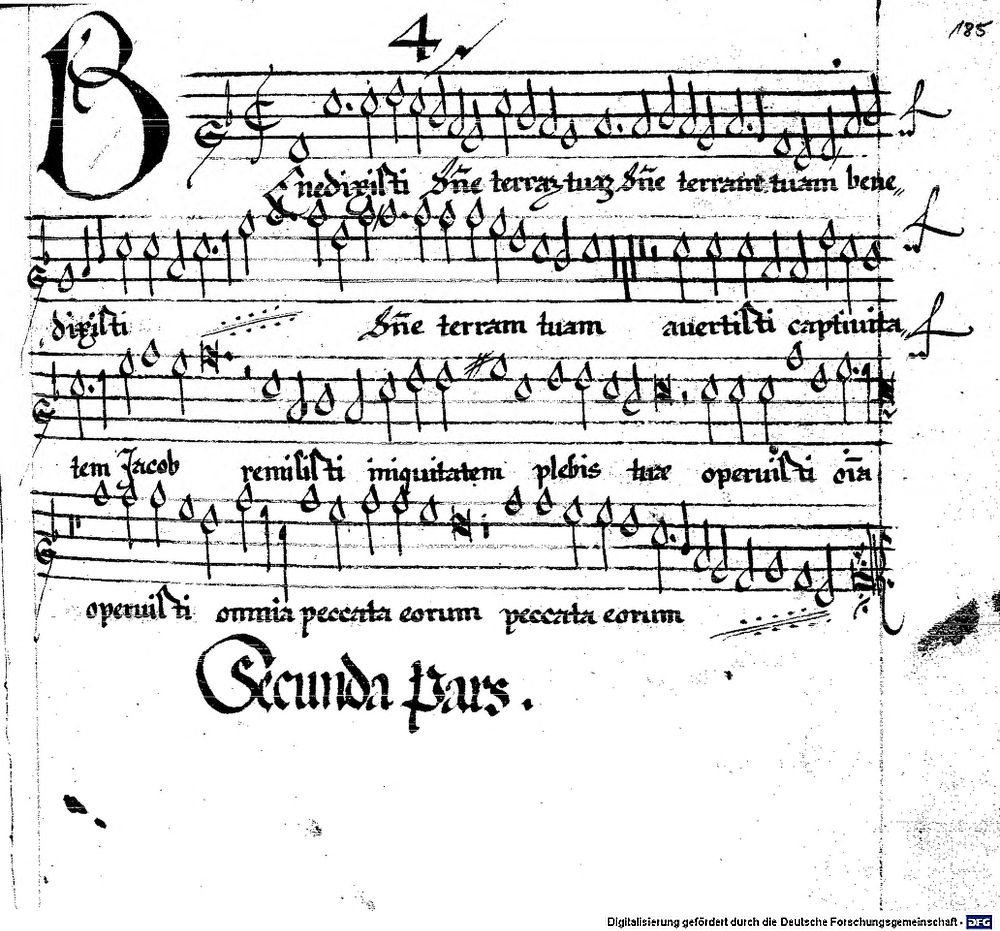 185
4
Benedixisti Dñe terrā tuā Dñe terram tuam bene„
dixisti Dñe terram tuam avertisti captivita„
tem Jacob remisisti iniquitatem plebis tuæ operuisti oīa
operuisti omnia peccata eorum peccata eorum
Secunda Pars.
Digitalisierung gefördert durch die Deutsche Forschungsgemeinschaft - DFG